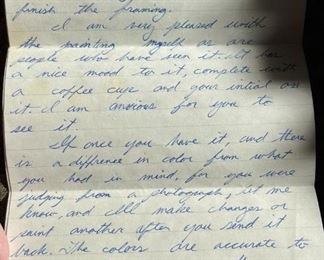 finish the framing.
I am very pleased with
the painting myself as are
people who have seen it. It has
a nice mood to it, complete with
a coffee cup and your initial on
it. I am anxious for you to
see it
If once you have it, and there
is a difference in color from what
you had in mind, for you were
judging from a photograph, let me
know, and I'll make changes or
paint another after you send it
back. The colors are accurate to